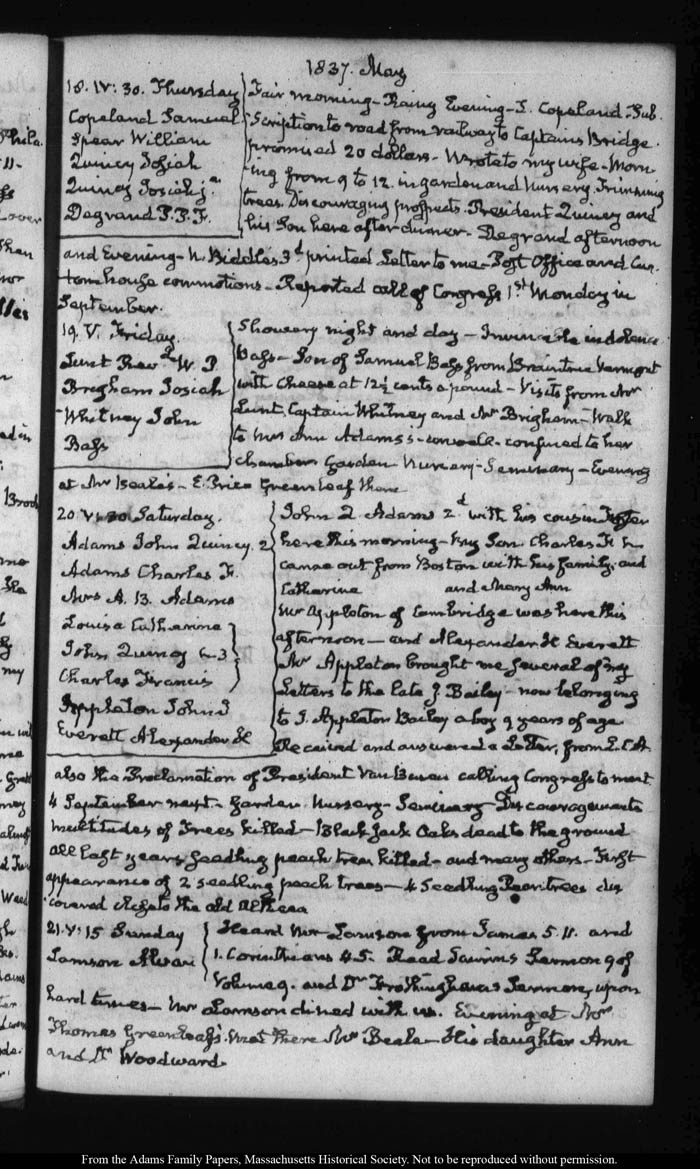 1837. May
18. IV:30. Thursday
Copeland Samuel
Spear William
Quincy Josiah
Quincy Josiah jr.
Degrand P.P.F.
Fair morning - Rainy Evening - S. Copeland - Sub-
scription to road from railway to Captains Bridge.
promised 20 dollars - Wrote to my wife - Morn-
ing from 9 to 12. in garden and Nursery. Trimming
trees. Discouraging prospects. President Quincy and
his Son here after dinner - Degrand afternoon
and Evening - N. Biddle's 3d printed Letter to me - Post Office and Cus-
tom house commotions - Reported call of Congress 1st Monday in
September.
19. V. Friday.
Lunt Revd W. P.
Brigham Josiah
Whitney John
Bass
Showery night and day - Invincible indolence
Bass - Son of Samuel Bass from Braintree Vermont
with Cheese at 12½ cents a pound - Visits from Mr
Lunt, Captain Whitney and Mr Brigham - Walk
to Mrs Ann Adams's - unwell - confined to her
chamber. Garden - Nursery - Seminary - Evening
at Mr Beale's - E. Price Greenleaf there
20. V:30. Saturday.
Adams John Quincy. 2
Adams Charles F.
Mrs A. B. Adams
Louisa Catharine
John Quincy 3
Charles Francis
Appleton John J
Everett Alexander H
John Q. Adams 2d with his cousin
here this morning - My Son Charles
came out from Boston with his family. and
Catharine and Mary Ann
Mr Appleton of Cambridge was here this
afternoon - and Alexander H Everett
Mr Appleton brought me several of my
Letters to the late J. Bailey - now belonging
to J. Appleton Bailey a boy 9 years of age
Received and answered a Letter, from L.C.A.
also the Proclamation of President Van Buren calling Congress to meet
4 September next - Garden. Nursery - Seminary Discouragements
Multitudes of Trees killed - Black Jack Oaks dead to the ground
All last years seedling peach trees killed - and many others - First
appearance of 2 seedling peach trees - 4 Seedling Pear trees dis-
covered close to the old Althaea
21. V:15 Sunday
Lamson Alvan
Heard Mr Lamson from James 5. 11. and
1. Corinthians 4.5. Read Saurins Sermon 9 of
Volume 9. and Dr Frothingham's Sermon, upon
hard times - Mr Lamson dined with us. Evening at Mr
Thomas Greenleaf's. met there Mr Beale - His daughter Ann
and Dr Woodward.
From the Adams Family Papers, Massachusetts Historical Society. Not to be reproduced without permission.